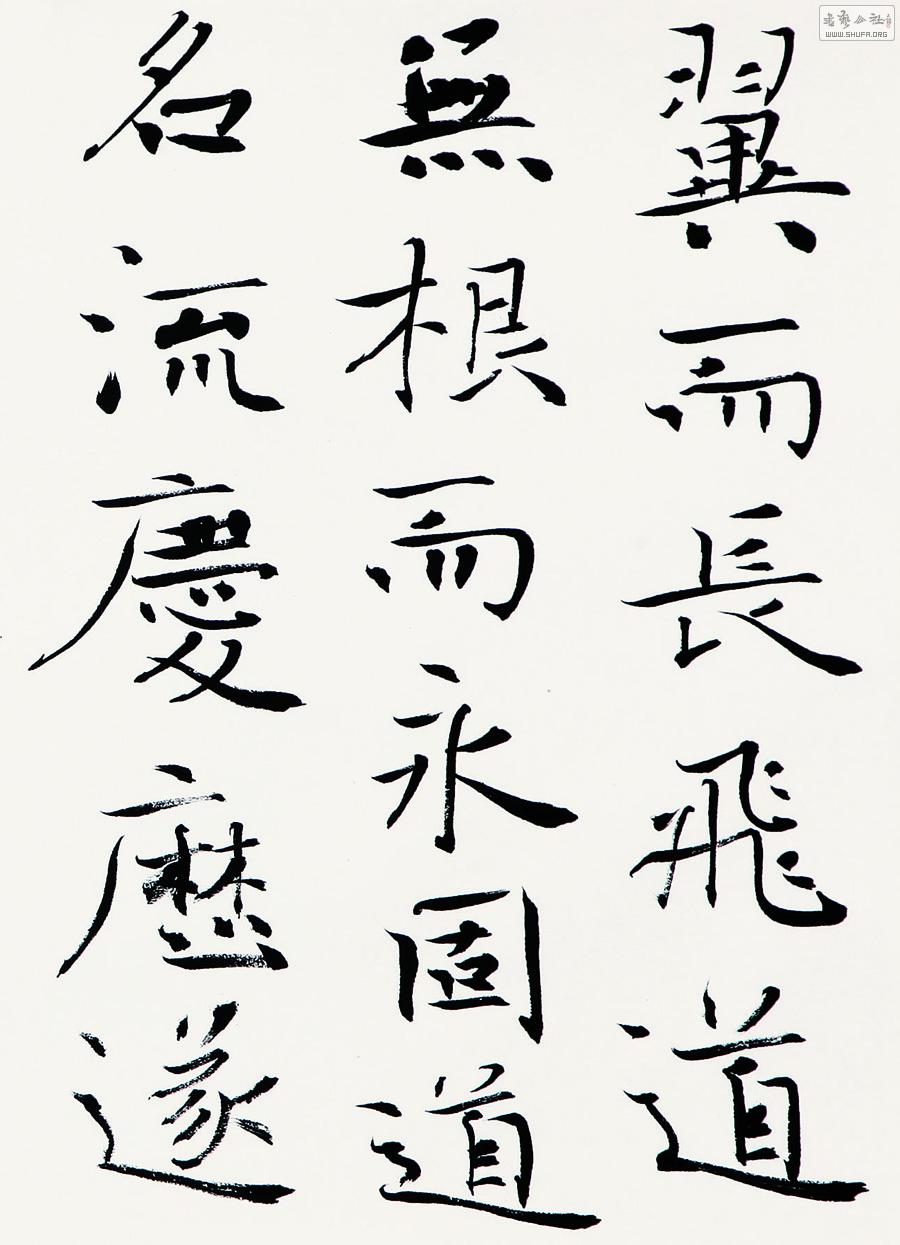 翼而長飛道
無根而永固道
名流慶歷遂
書藝公社
WWW.SHUFA.ORG